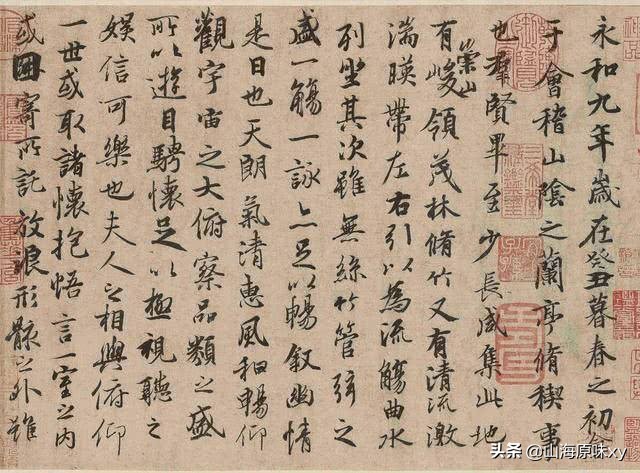 永和九年歲在癸丑暮春之初會
于會稽山陰之蘭亭脩稧事
也羣賢畢至少長咸集此地
有崇山峻領茂林脩竹又有清流激
湍暎帶左右引以為流觴曲水
列坐其次雖無絲竹管弦之
盛一觴一詠亦足以暢敘幽情
是日也天朗氣清惠風和暢仰
觀宇宙之大俯察品類之盛
所以遊目騁懷足以極視聽之
娛信可樂也夫人之相與俯仰
一世或取諸懷抱悟言一室之內
或因寄所託放浪形骸之外雖
头条 @山海原味xy